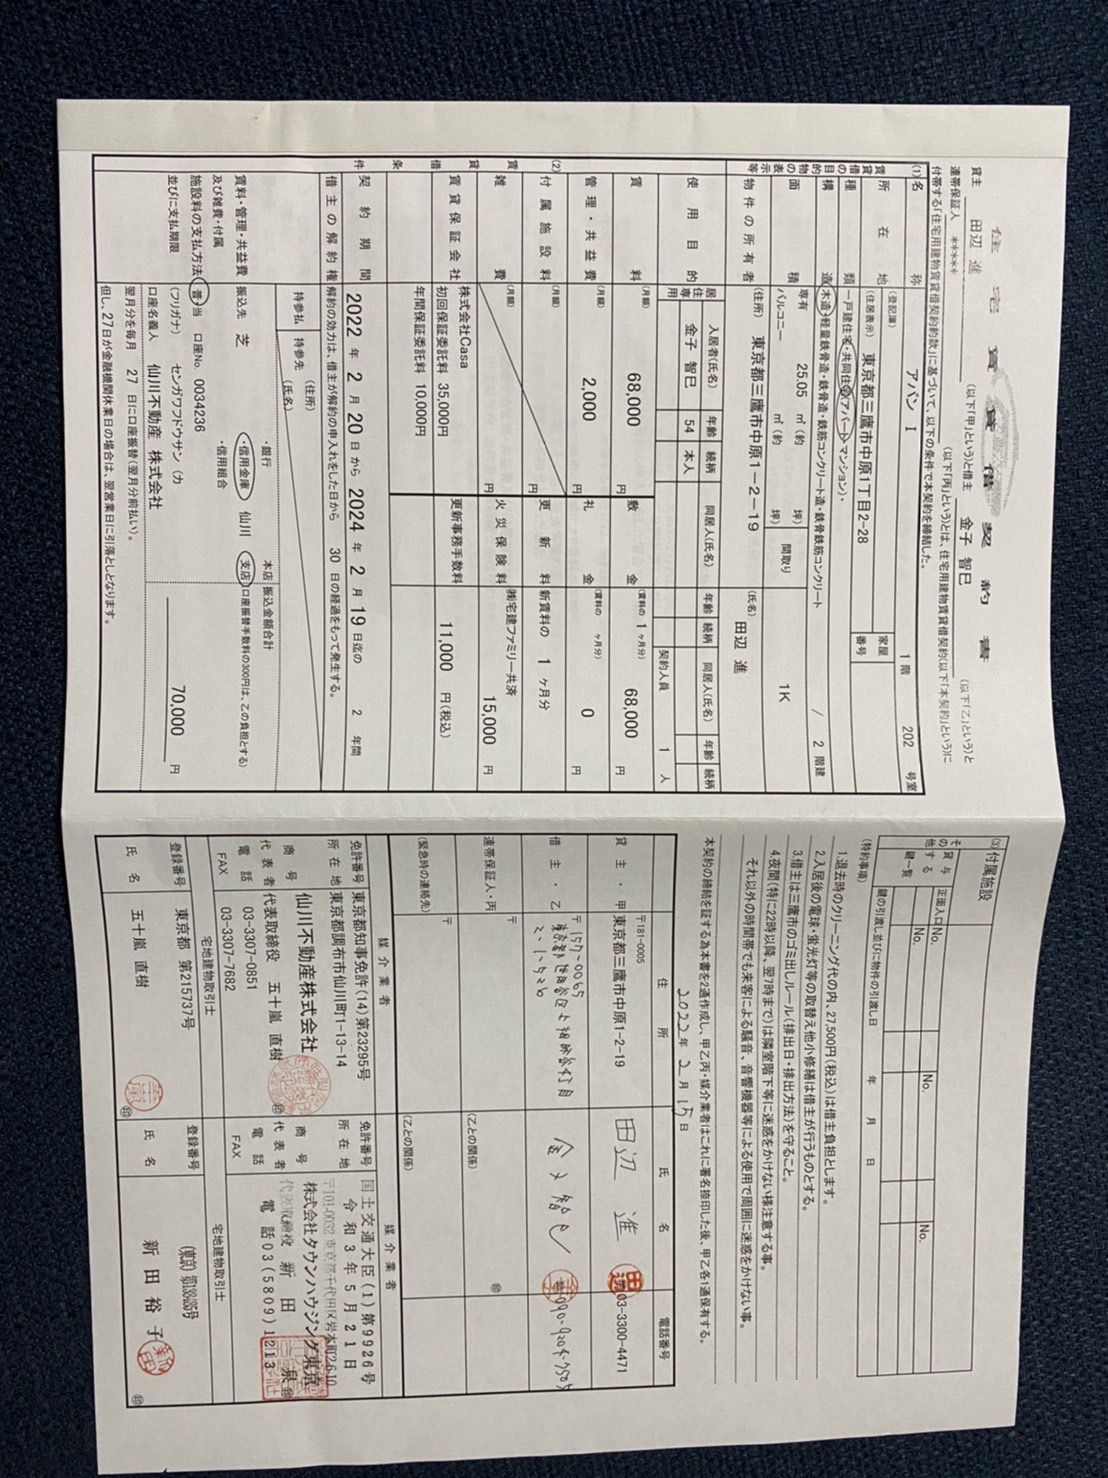 住宅賃貸借契約書
貸主 田辺 進 (以下「甲」という)と借主 金子 智巳 (以下「乙」という)と
連帯保証人 **** (以下「丙」という)とは、住宅用建物賃貸借契約(以下「本契約」という)に
付帯する「住宅用建物賃貸借契約約款」に基づいて、以下の条件で本契約を締結した。
(1) 賃貸借の目的物の表示等
名称 アパン I 1 階 202 号室
所在地 (登記簿) 家屋番号
(住居表示) 東京都三鷹市中原1丁目2-28
種類 一戸建住宅・共同住宅(アパート・マンション)・
構造 木造・軽量鉄骨造・鉄骨造・鉄筋コンクリート造・鉄骨鉄筋コンクリート / 2 階建
面積 専有 25.05 ㎡(約 坪) 間取り 1K
バルコニー ㎡(約 坪)
物件の所有者 (住所) 東京都三鷹市中原1-2-19 (氏名) 田辺 進
使用目的 居住専用 入居者(氏名) 年齢 続柄 同居人(氏名) 年齢 続柄 同居人(氏名) 年齢 続柄
金子 智巳 54 本人 契約人員 1 人
(2) 賃貸借条件
賃料 (月額) 68,000 円 敷金 (賃料の 1 ヶ月分) 68,000 円
管理・共益費 (月額) 2,000 円 礼金 (賃料の ヶ月分) 0 円
付属施設料 (月額) 円 更新料 新賃料の 1 ヶ月分
雑費 (月額) 円 火災保険料 ㈱宅建ファミリー共済 15,000 円
賃貸保証会社 株式会社Casa
初回保証委託料 35,000円
年間保証委託料 10,000円
更新事務手数料 11,000 円(税込)
契約期間 2022 年 2 月 20 日から 2024 年 2 月 19 日迄の 2 年間
借主の解約権 解約の効力は、借主が解約の申入れをした日から 30 日の経過をもって発生する。
賃料・管理・共益費及び雑費・付属施設料の支払方法並びに支払期限
持参払 持参先 (住所)
(氏名)
振込先 芝 ・銀行 ・信用金庫 ・信用組合 仙川 本店 支店 振込金額合計
(口座振替手数料の300円は、乙の負担とする)
普・当 口座No. 0034236
(フリガナ) センガワフドウサン (カ
口座名義人 仙川不動産 株式会社 70,000 円
翌月分を毎月 27 日に口座振替(翌月分前払い)。
但し、27日が金融機関休業日の場合は、翌営業日に引落としとなります。
(3)付属施設
その他 貸与する鍵一覧 正面入口 No. No. No.
No.
鍵の引渡し並びに物件の引渡し日 年 月 日
(特約事項)
1.退去時のクリーニング代の内、27,500円(税込)は借主負担とします。
2.入居後の電球・蛍光灯等の取替え他小修繕は借主が行うものとする。
3.借主は三鷹市のゴミ出しルール(排出日・排出方法)を守ること。
4.夜間(特に22時以降、翌7時まで)は隣室階下等に迷惑をかけない様注意する事。
それ以外の時間帯でも来客による騒音、音響機器等による使用で周囲に迷惑をかけない事。
本契約の締結を証する為本書を2通作成し、甲乙丙・媒介業者はこれに署名捺印した後、甲乙各1通保有する。
2022年 2月 15日
住所 氏名 電話番号
貸主・甲 〒181-0005
東京都三鷹市中原1-2-19 田辺 進 03-3300-4471
借主・乙 〒157-0065
東京都世田谷区上祖師谷4丁目
2-1-526 金子智巳 090-9204-7505
連帯保証人・丙 〒 (乙との関係) ㊞
(緊急時の連絡先) 〒 (乙との関係)
媒介業者
免許番号 東京都知事免許(14)第23295号
所在地 東京都調布市仙川町1-13-14
商号 仙川不動産株式会社
代表者 代表取締役 五十嵐 直樹 ㊞
電話 03-3307-0851
FAX 03-3307-7682
宅地建物取引士
登録番号 東京都 第215737号
氏名 五十嵐 直樹 ㊞
媒介業者
免許番号 国土交通大臣(1)第9926号
令和3年5月21日
所在地 〒101-0032 東京都千代田区岩本町2-6-10
商号 株式会社タウンハウジング東京
代表者 代表取締役 新田 泉 ㊞
電話 電話03(5809)1213
FAX
宅地建物取引士
登録番号 (東京)
氏名 新田 裕子 ㊞